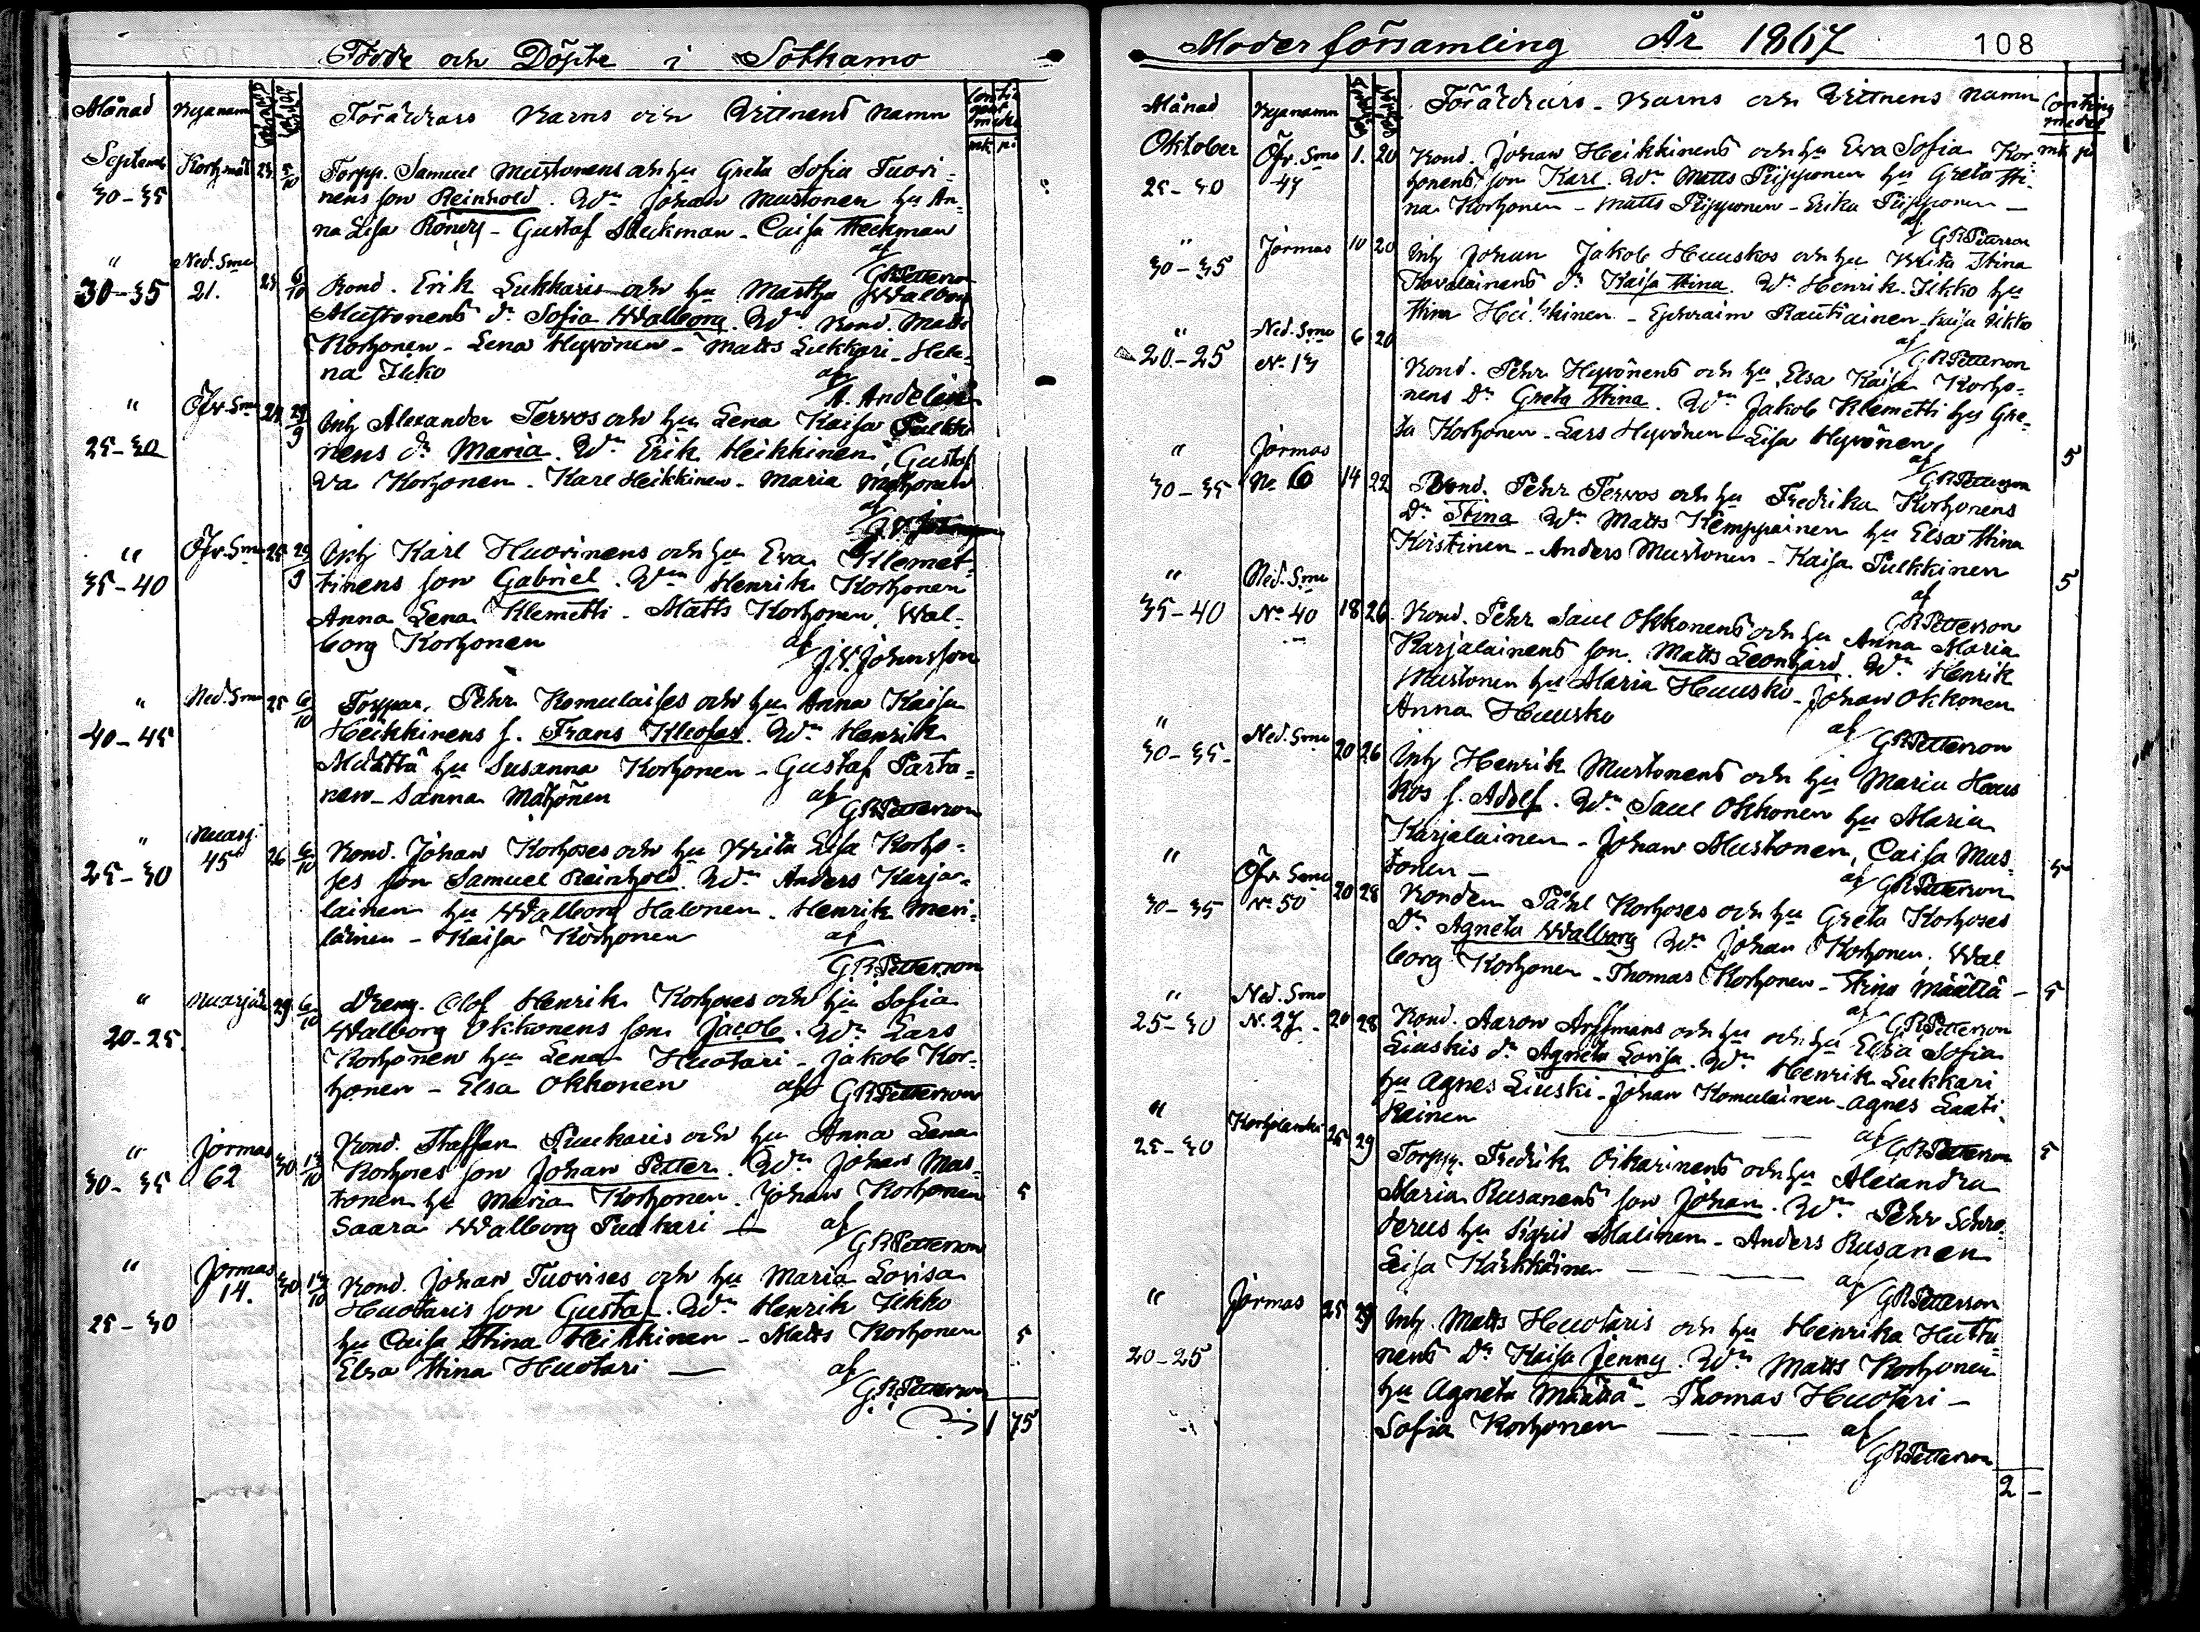 Födde och Döpte i Sotkamo
Månad Byanamn Föräldrars Barns och Vittnens namn
mk pi
Septemb Korhomäk 23 5/10 Torpp. Samuel Mustonens och hu Greta Sofia Tuori-
30-35 nens son Reinhold. Wn Johan Mustonen hu An-
na Lisa Rönny - Gustaf Heckman - Caisa Heckman
af
G R Petterson
" Ned. Smo 23 6/10 Bond. Erik Lukkaris och hu Martha Walborg
30-35 21. Mustonens dr Sofia Walborg. Wn Bond. Matts
Korhonen - Lena Hyvönen - Matts Lukkari - Hele-
na Ikko af
A. Andelin
" Öfv. Smo 24 29/9 Inh Alexander Tervos och hu Lena Kaisa Pulkki
25-30 nens dr Maria. Wn Erik Heikkinen, Gusta
va Korhonen - Karl Heikkinen - Maria Mähönen
af
" Öfv. Smo 25 29/9 Inh Karl Huovinens och hu Eva Klemet-
35-40 tinens son Gabriel. Wn Henrik Korhonen
Anna Lena Klemetti - Matts Korhonen, Wal-
borg Korhonen af
J. V. Johnsson
" Ned. Smo 25 6/10 Torppar. Pehr Komulaises och hu Anna Kaisa
40-45 Heikkinens s. Frans Kleofas. Wn Henrik
Määttä hu Susanna Korhonen - Gustaf Parta-
nen - Sanna Mähönen af
G R Petterson
" Nuasj. 26 6/10 Bond. Johan Korhoses och hu Brita Lisa Korho-
25-30 45 ses son Samuel Reinhold. Wn Anders Karja-
lainen hu Walborg Halonen - Henrik Meri-
läinen - Kaisa Korhonen af
G R Petterson
" Nuasjär 29 6/10 Dreng. Olof Henrik Korhoses och hu Sofia
20-25. Walborg Okkonens son Jacob. Wn Lars
Korhonen hu Lena Huotari - Jakob Kor-
honen - Elsa Okkonen af G R Petterson
" Jormas 30 13/10 Bond. Staffan Puukaris och hu Anna Lena
30-35 62 Korhoses son Johan Petter. Wn Johan Mus-
tonen hu Maria Korhonen. Johan Korhonen 5
Saara Walborg Puukari af
G R Petterson
" Jormas 30 13/10 Bond. Johan Tuovises och hu Maria Lovisa
25-30 14. Huotaris son Gustaf. Wn Henrik Ikko
hu Caisa Stina Heikkinen - Matts Korhonen 5
Elsa Stina Huotari — af
G. R. Petterson
1 75
Moderförsamling År 1867 108
Månad Byanamn Föräldrars - Barns och Vittnens namn
mk pi
Oktober Öfv. Smo 1. 20 Bond. Johan Heikkinens och hu Eva Sofia Kor-
25-30 47 honens son Karl. Wn Matts Piipponen hu Greta Sti-
na Korhonen - Matts Piipponen - Erika Piipponen —
af
G R Petterson
" Jormas 10 20 Inh Johan Jakob Huuskos och hu Brita Stina
30-35 Kovalainens dr Kaisa Stina. Wn Henrik Ikko hu
Stina Heikkinen - Ephraim Rautiainen - Kaisa Ikko
af
G R Petterson
" Ned. Smo 6 20
20-25 No 13 Bond. Pehr Hyvönens och hu Elsa Kaisa Korho-
nens Dr Greta Stina. Wn Jakob Klemetti hu Gre-
ta Korhonen - Lars Hyvönen - Lisa Hyvönen
af
G R Petterson 5
" Jormas
30-35 No 6 14 22 Bond. Pehr Tervos och hu Fredrika Korhonens
Dr Stina Wn Matts Kemppainen hu Elsa Stina
Koistinen - Anders Mustonen - Kaisa Pulkkinen 5
af
G R Petterson
" Ned. Smo
35-40 No 40 18 26 Bond. Pehr Saul Okkonens och hu Anna Maria
Karjalainens son. Matts Leonhard. Wn Henrik
Mustonen hu Maria Huusko - Johan Okkonen
Anna Huusko af
G R Petterson
" Ned. Smo
30-35 20 26 Inh Henrik Mustonens och hu Maria Huus
kos s. Adolf. Wn Saul Okkonen hu Maria
Karjalainen - Johan Mustonen, Caisa Mus-
tonen — af
G R Petterson 5
" Öfv. Smo
30-35 No 50 20 28 Bonden Påhl Korhoses och hu Greta Korhoses
Dr Agneta Walborg Wn Johan Korhonen. Wal
borg Korhonen - Thomas Korhonen - Stina Määttä — 5
af
G R Petterson
" Ned. Smo
25-30 N. 27. 20 28 Bond. Aaron Arffmans och hu och hu Elsa Sofia
Liuskis dr Agneta Lovisa. Wn Henrik Lukkari
hu Agnes Liuski - Johan Komulainen - Agnes Laati-
kainen af
G R Petterson 5
" Korholanki 25 29
25-30 Torpp. Fredrik Oikarinens och hu Alexandra
Maria Rusanens son Johan. Wn Pehr Schro-
derus hu Sigrid Malinen - Anders Rusanen
Lisa Kärkkäinen af
G R Petterson
" Jormas 25 29 Inh. Matts Huotaris och hu Henrika Huttu-
20-25 nens Dr Kaisa Jenny. Wn Matts Korhonen
hu Agneta Määttä - Thomas Huotari -
Sofia Korhonen af
G R Petterson
2 —